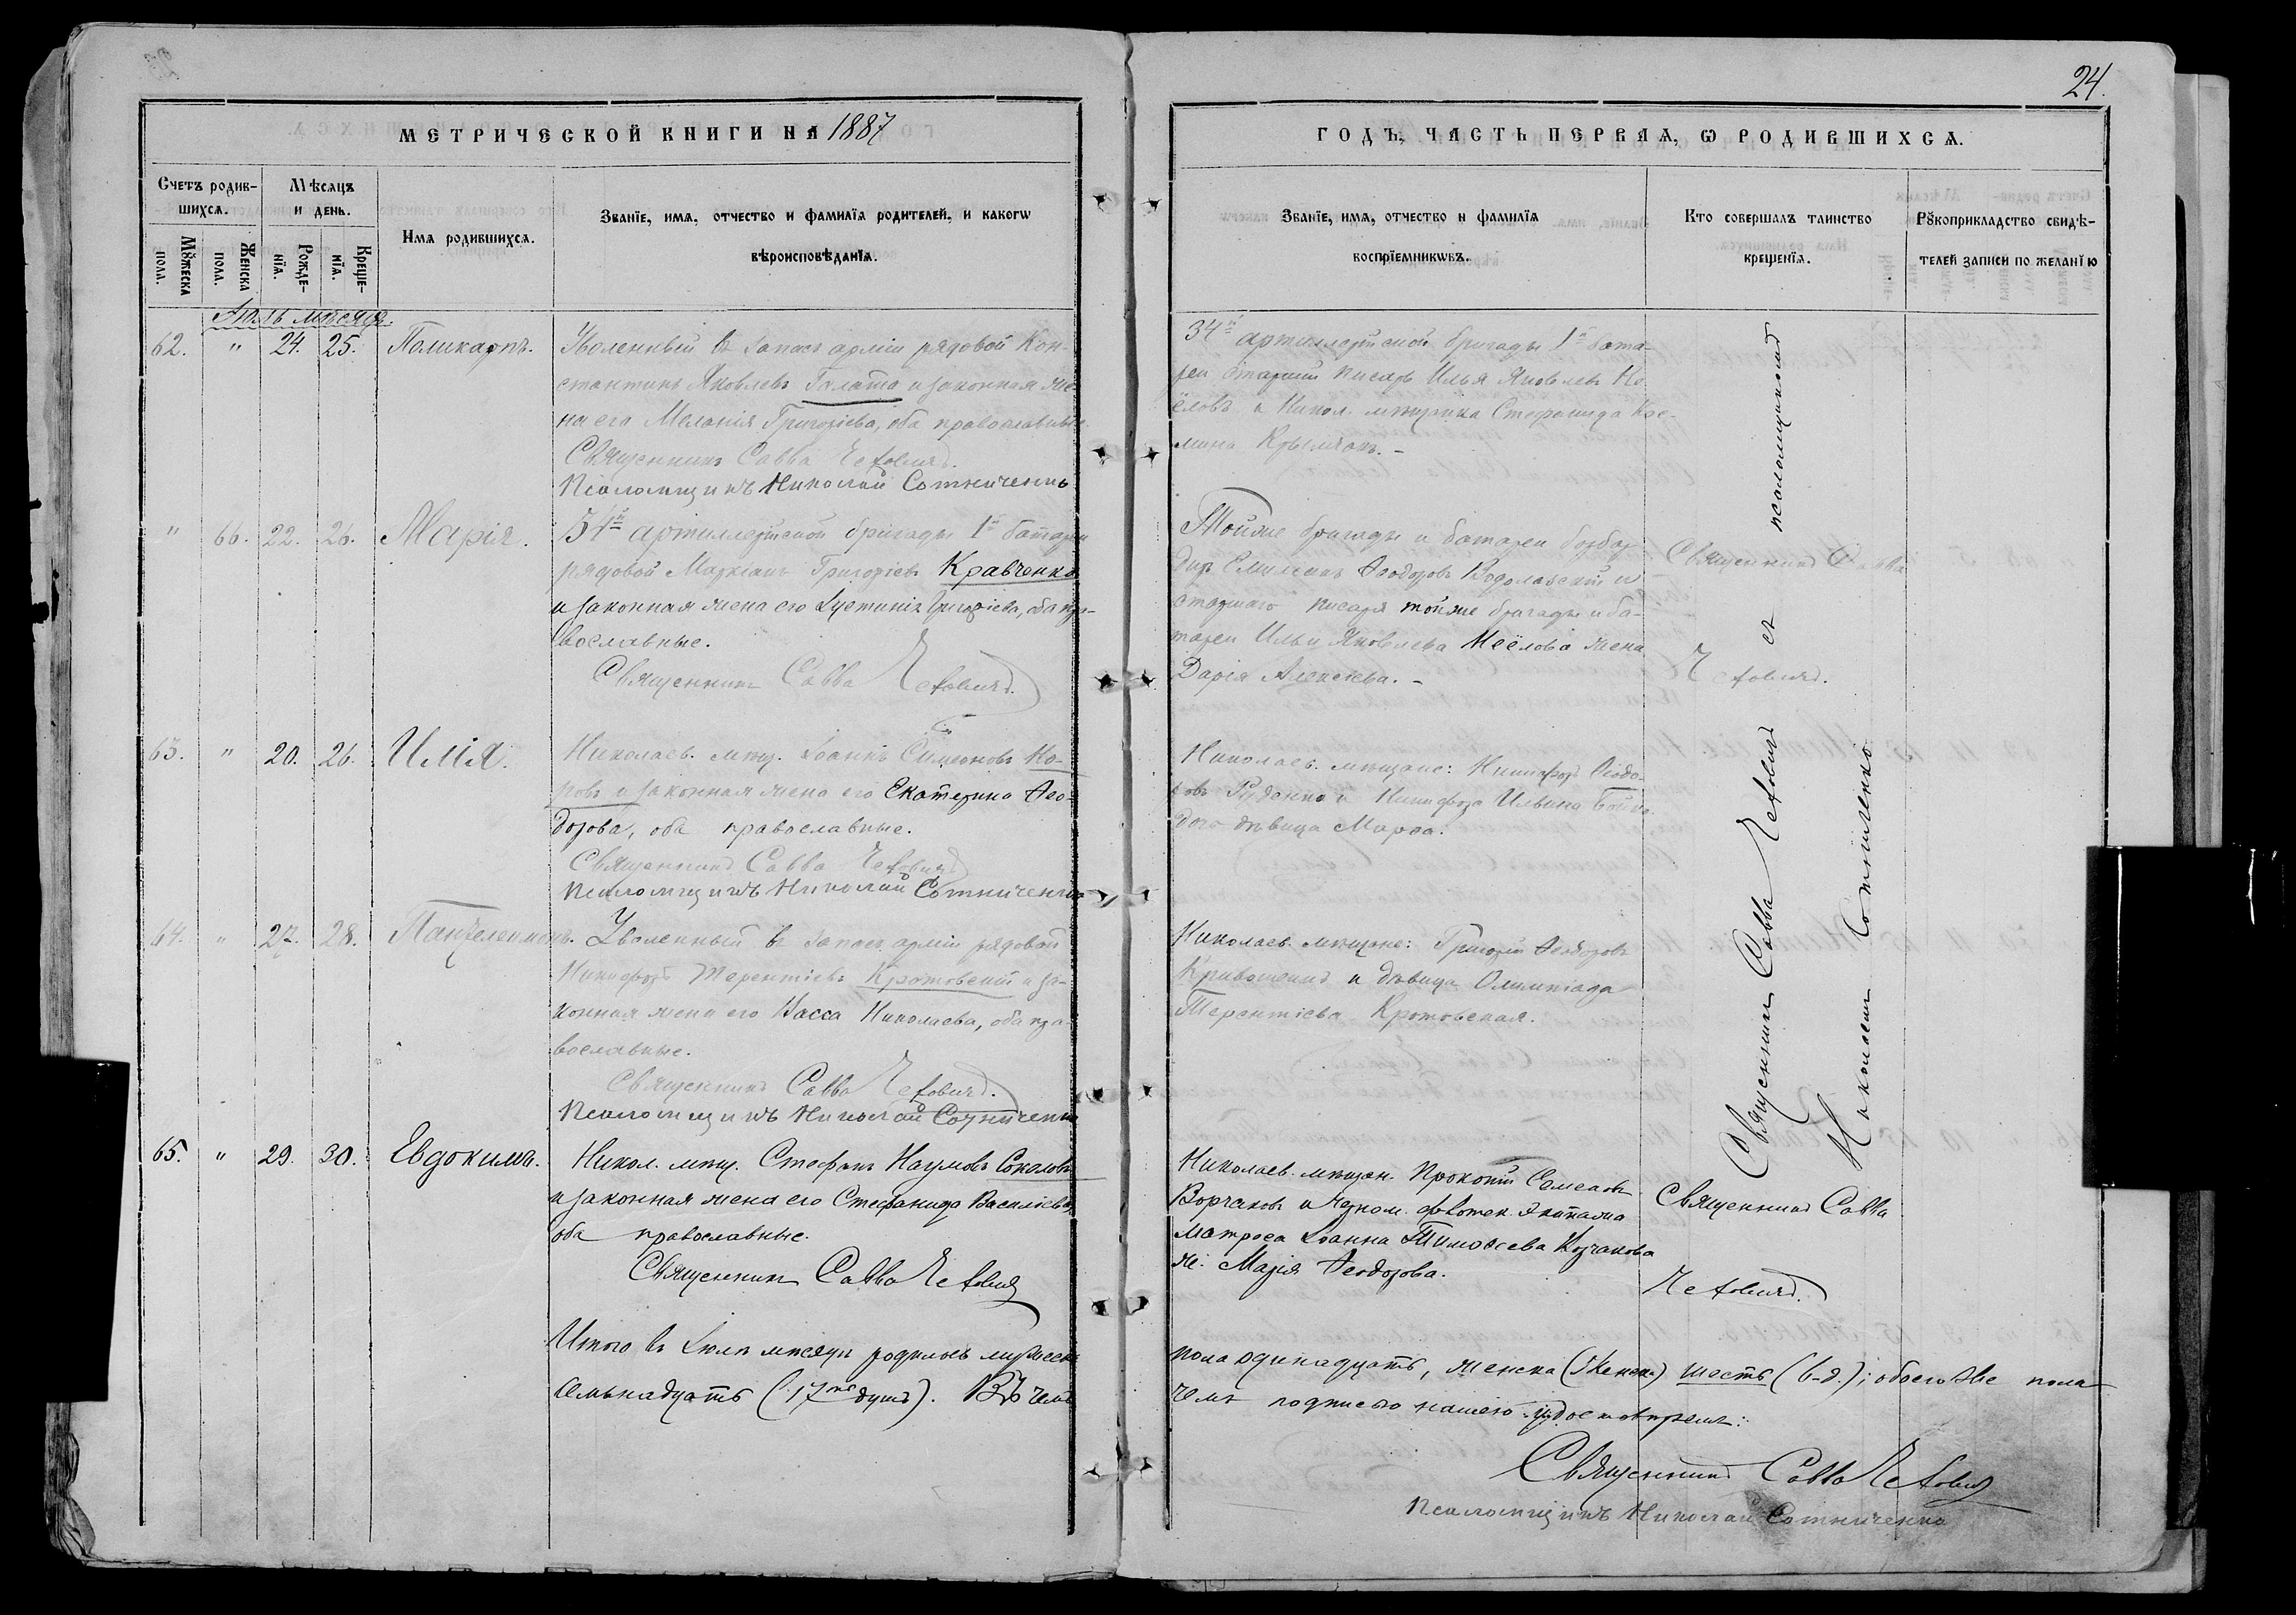 24.
МЕТРИЧЕСКОЙ КНИГИ НА 1887
ГОДЪ, ЧАСТЬ ПЕРВАЯ, Ѡ РОДИВШИХСѦ.
Счетъ родив-
шихсѧ.
Мꙋжеска
пола.
Женска
пола.
Мѣсѧцъ
и день.
Рожде-
нїѧ.
Креще-
нїѧ.
Имѧ родившихсѧ.
Званїе, имѧ, отчество и фамилїѧ родителей, и какогѡ
вѣроисповѣданїѧ.
Званїе, имѧ, отчество и фамилїѧ
воспрїемникѡвъ.
Кто совершалъ таинство
крещенїѧ.
Рꙋкоприкладство свидѣ-
телей записи по желанїю
Іюль мѣсяцъ.
62. " 24. 25. Поликарпъ.
Уволенный въ запасъ арміи рядовой Кон-
стантинъ Яковлевъ Галата и законная же-
на его Меланія Григоріева, оба православные
Священникъ Савва
Псаломщикъ Николай Сотниченко
34й артиллерійской бригады 1й бата-
реи старшій писарь Илья Яковлевъ Не-
ёловъ и Никол. мѣщанка Стефанида
" 66. 22. 26. Марія.
34й артиллерійской бригады 1й батареи
рядовой Маркіанъ Григоріевъ Кравченко
и законная жена его Іустинія Григоріева, оба пра-
вославные.
Священникъ Савва
Тойже бригады и батареи бомбар-
диръ Емиліанъ Ѳеодоровъ Водолазскій и
старшаго писаря тойже бригады и ба-
тареи Ильи Яковлева Неёлова жена
Дарія Алексіева. -
Священникъ Савва
63. " 20. 26. Илія.
Николаев. мѣщ. Іоаннъ Симеоновъ Но-
ровъ и законная жена его Екатерина Ѳео-
дорова, оба православные.
Священникъ Савва
Псаломщикъ Николай Сотниченко
Николаев. мѣщане: Никифоръ Ѳеодо-
ровъ Руденко и Никифора Ильина
дѣвица Марѳа.
64. " 27. 28. Пантелеимонъ.
Уволенный въ запасъ арміи рядовой
Никифоръ Терентіевъ Кротовскій и за-
конная жена его Васса Николаева, оба пра-
вославные.
Священникъ Савва
Псаломщикъ Николай Сотниченко
Николаев. мѣщане: Григорій Ѳеодоровъ
и дѣвица Олимпіада
Терентіева Кротовская.
Священникъ Савва съ псаломщикомъ
Николаемъ Сотниченко
65. " 29. 30. Евдокимъ.
Никол. мѣщ. Стефанъ Наумовъ Соколовъ
и законная жена его Стефанида Василіева,
оба православные.
Священникъ Савва
Николаев. мѣщан. Прокопій Семеновъ
Ворчаковъ и Черном. флотск. Экипажа
матроса Іоанна Тимоѳеева Корчакова
ж. Марія Ѳеодорова.
Священникъ Савва
Итого въ Іюлѣ мѣсяцѣ родилось мужеска
пола одинадцать, женска (женска) шесть (6-д.); обоего же пола
семьнадцать (17ть душъ). Въ чемъ
чемъ подписью нашею удостовѣряемъ:
Священникъ Савва
Псаломщикъ Николай Сотниченко